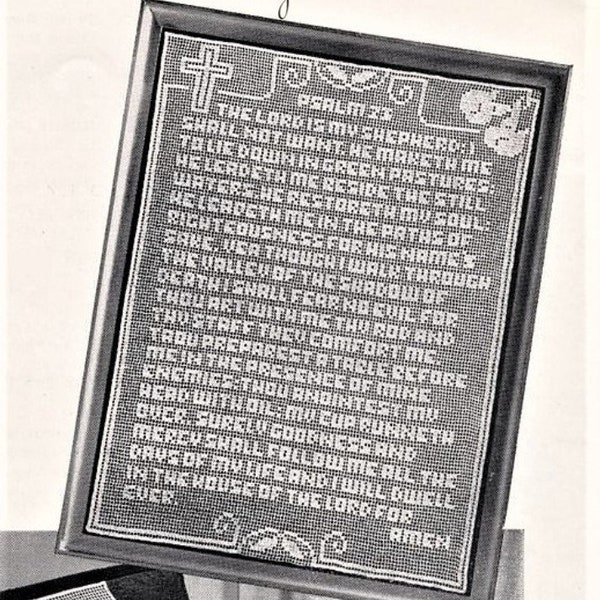 PSALM 23
THE LORD IS MY SHEPHERD; I
SHALL NOT WANT. HE MAKETH ME
TO LIE DOWN IN GREEN PASTURES:
HE LEADETH ME BESIDE THE STILL
WATERS. HE RESTORETH MY SOUL:
HE LEADETH ME IN THE PATHS OF
RIGHTEOUSNESS FOR HIS NAME'S
SAKE. YEA THOUGH I WALK THROUGH
THE VALLEY OF THE SHADOW OF
DEATH I SHALL FEAR NO EVIL FOR
THOU ART WITH ME THY ROD AND
THY STAFF THEY COMFORT ME
THOU PREPAREST A TABLE BEFORE
ME IN THE PRESENCE OF MINE
ENEMIES: THOU ANOINTEST MY
HEAD WITH OIL: MY CUP RUNNETH
OVER. SURELY GOODNESS AND
MERCY SHALL FOLLOW ME ALL THE
DAYS OF MY LIFE AND I WILL DWELL
IN THE HOUSE OF THE LORD FOR
EVER.
AMEN